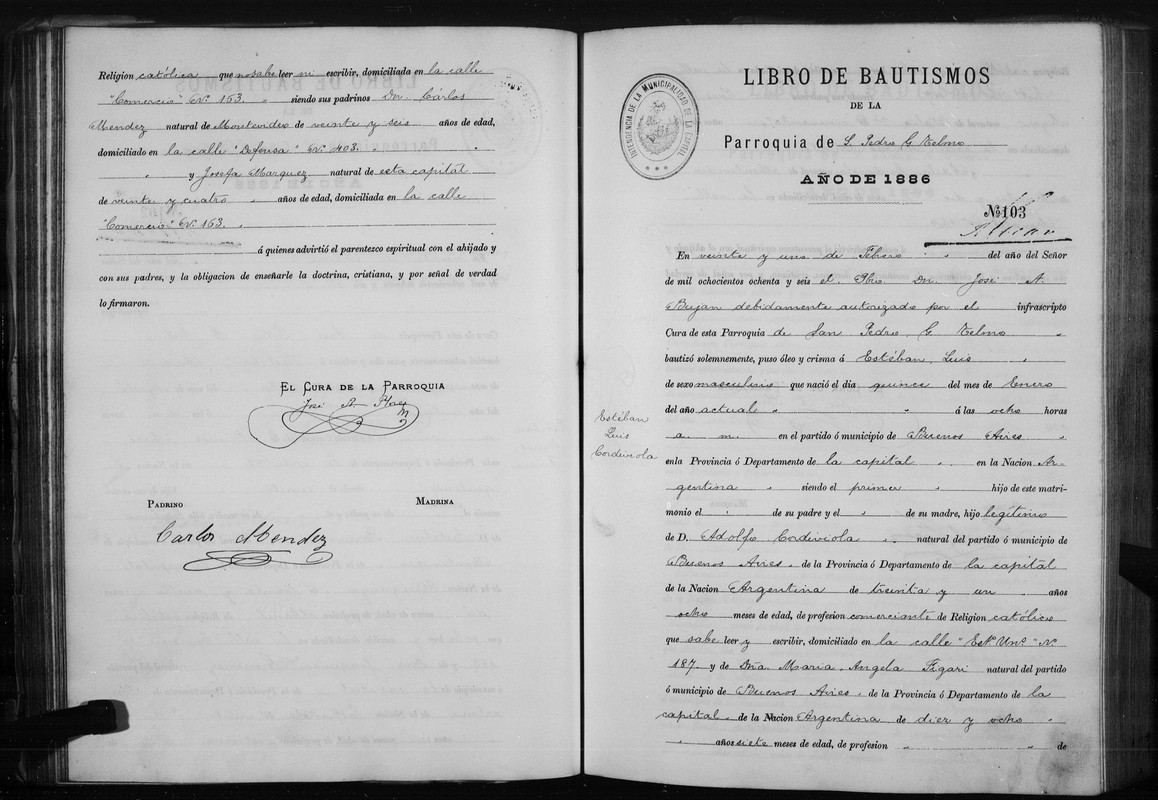 Religion católica que no sabe leer ni escribir, domiciliada en la calle
"Comercio" Nº 153. siendo sus padrinos Dn. Cárlos
Mendez natural de Montevideo de veinte y seis años de edad,
domiciliado en la calle "Defensa" Nº 403.
" y Josefa Marquez natural de esta capital
de veinte y cuatro años de edad, domiciliada en la calle
"Comercio" Nº 153.
á quienes advirtió el parentezco espiritual con el ahijado y
con sus padres, y la obligacion de enseñarle la doctrina, cristiana, y por señal de verdad
lo firmaron.
EL CURA DE LA PARROQUIA
José
PADRINO
MADRINA
Carlos Mendez
LIBRO DE BAUTISMOS
DE LA
Parroquia de S. Pedro G. Telmo
AÑO DE 1886
INTENDENCIA DE LA MUNICIPALIDAD DE LA CAPITAL
Nº 103
En veinte y uno de Febrero del año del Señor
de mil ochocientos ochenta y seis el Pbro. Dn. José A.
Bujan debidamente autorizado por el infrascripto
Cura de esta Parroquia de San Pedro G. Telmo
bautizó solemnemente, puso óleo y crisma á Estéban Luis
de sexo masculino que nació el dia quince del mes de Enero
del año actual " " á las ocho horas
a. m. en el partido ó municipio de Buenos Aires
en la Provincia ó Departamento de la capital en la Nacion Ar-
gentina siendo el primer hijo de este matri-
monio el " de su padre y el " de su madre, hijo legítimo
de D. Adolfo Cordiviola natural del partido ó municipio de
Buenos Aires, de la Provincia ó Departamento de la capital
de la Nacion Argentina de treinta y un años
ocho meses de edad, de profesion comerciante de Religion católica
que sabe leer y escribir, domiciliado en la calle "Est. Uns." Nº
187. y de Dña. Maria Angela Figari natural del partido
ó municipio de Buenos Aires, de la Provincia ó Departamento de la
capital de la Nacion Argentina de diez y ocho
" años siete meses de edad, de profesion " " de
Estéban
Luis
Cordiviola